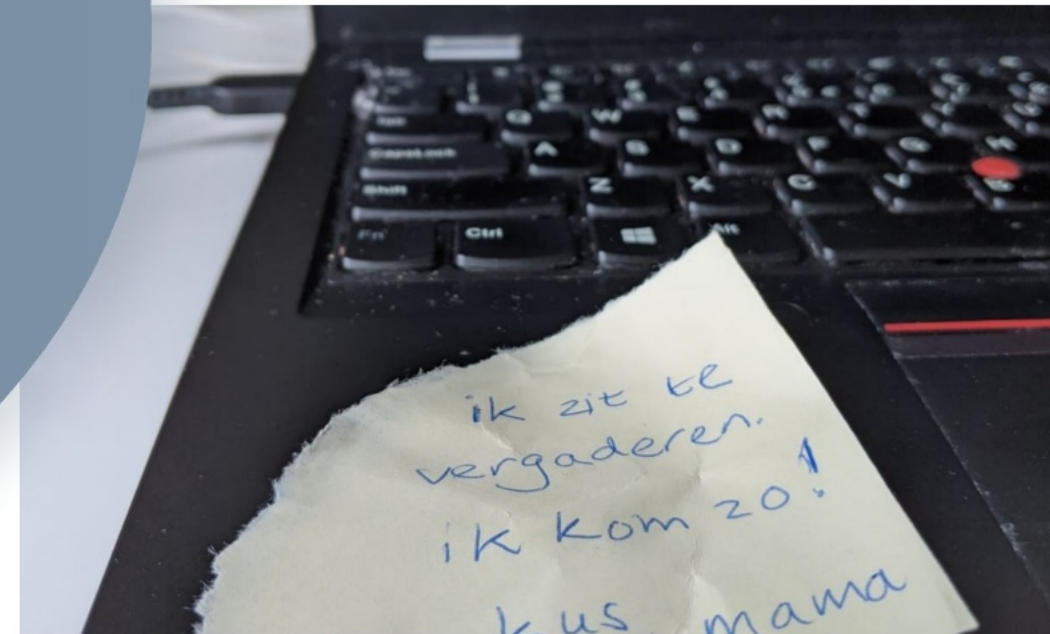 Tab
Q W E R T Y
CapsLock
A S D F G H
Shift
Z X C V B
Fn Ctrl Alt
ik zit te
vergaderen.
ik kom zo!
kus mama